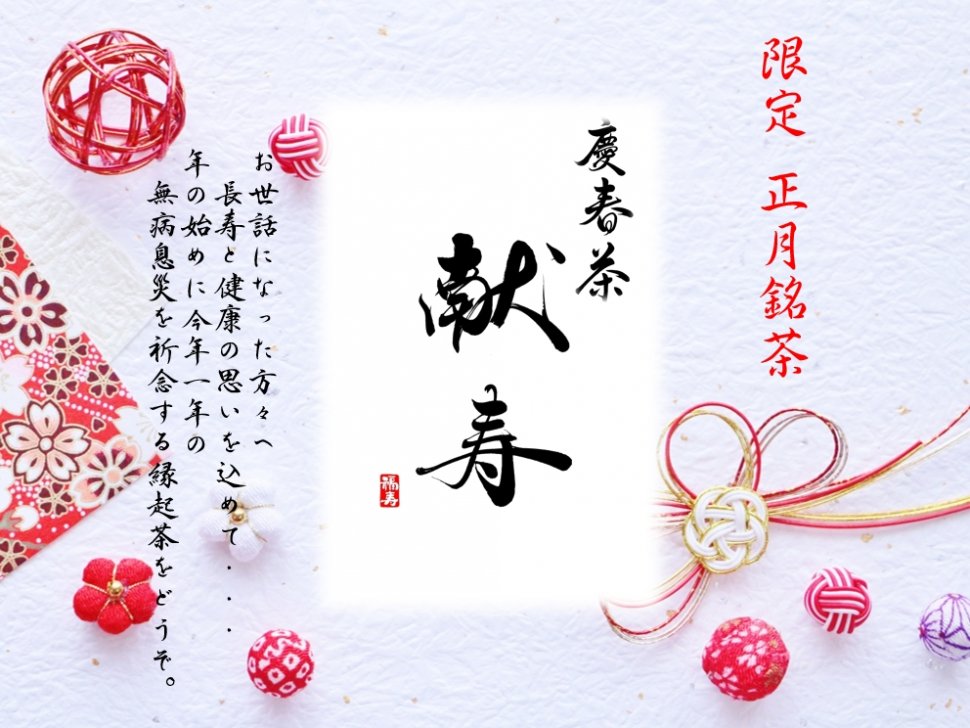 限定 正月銘茶
慶春茶
献寿
福寿
お世話になった方々へ
長寿と健康の思いを込めて・・・
年の始めに今年一年の
無病息災を祈念する縁起茶をどうぞ。